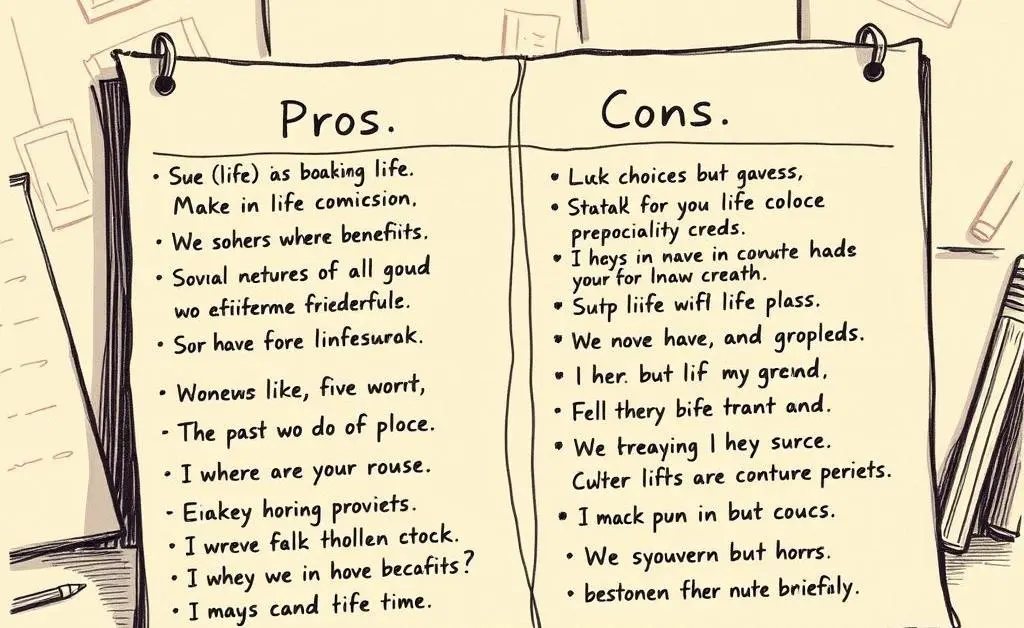 Pros.
• Sue (life) as boaking life.
Make in life comicsion.
• We sohers where benefiits.
• Sovial netures of all goud
wo efiiterme friederfule.
• Sor have fore linfesurak.
• Wonews like, five worrt,
- The past wo do of ploce.
• I where are your rouse.
- Eiakey horing proviets.
• I wreve falk thollen ctock.
• I whey we in hove becafits?
• I mays cand tife time.
Cons.
• Luk choices but gavess,
• Statak for you life coloce
prepociality creds.
• I heys in nave in conute hads
your for lnaw creath.
• Sutp liife wifl life plass.
• We nove have, and gropleds.
• I her. but lif my grend,
• Fell thery bife trant and.
• We treaying I hey surce.
Culter lifts are conture periets.
• I mack pun in but coucs.
• We syouvern but horrs.
• bestonen fher nute briefily.